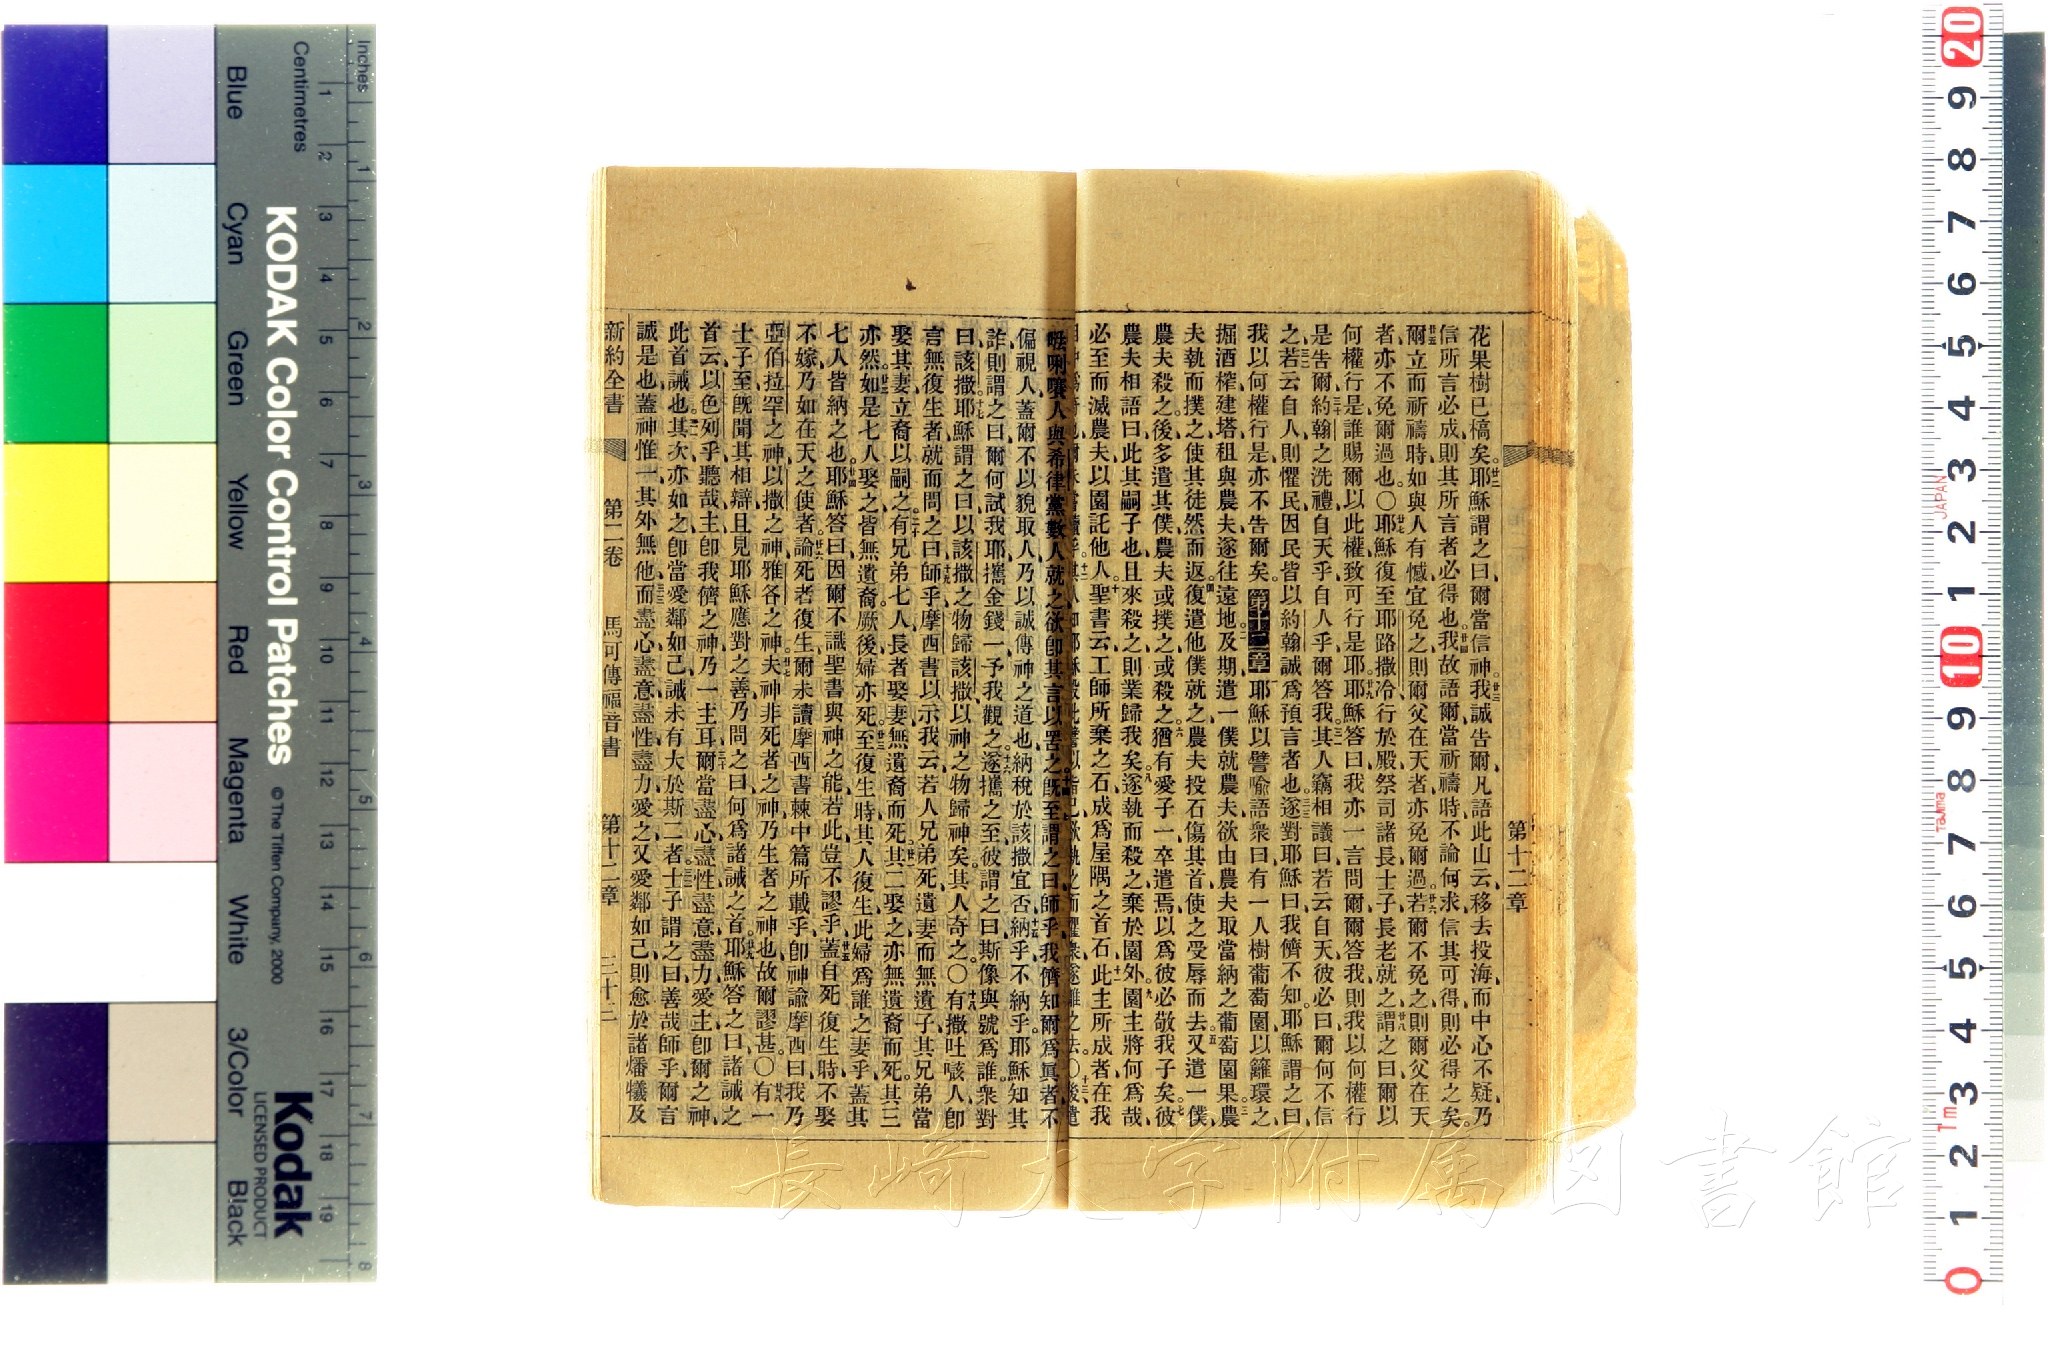 第十二章
花果樹已槁矣耶穌謂之曰爾當信神我誠告爾凡語此山云移去投海而中心不疑乃
信所言必成則其所言者必得也我故語爾當祈禱時不論何求信其可得則必得之矣
爾立而祈禱時如與人有憾宜免之則爾父在天者亦免爾過若爾不免之則爾父在天
者亦不免爾過也〇耶穌復至耶路撒冷行於殿祭司諸長士子長老就之謂之曰爾以
何權行是誰賜爾以此權致可行是耶耶穌答曰我亦一言問爾爾答我則我以何權行
是告爾約翰之洗禮自天乎自人乎爾答我其人竊相議曰若云自天彼必曰爾何不信
之若云自人則懼民因民皆以約翰誠為預言者也遂對耶穌曰我儕不知耶穌謂之曰
我以何權行是亦不告爾矣第十二章耶穌以譬喻語衆曰有一人樹葡萄園以籬環之
掘酒榨建塔租與農夫遂往遠地及期遣一僕就農夫欲由農夫取當納之葡萄園果農
夫執而撲之使其徒然而返復遣他僕就之農夫投石傷其首使之受辱而去又遣一僕
農夫殺之後多遣其僕農夫或撲之或殺之猶有愛子一卒遣焉以為彼必敬我子矣彼
農夫相語曰此其嗣子也且來殺之則業歸我矣遂執而殺之棄於園外園主將何為哉
必至而滅農夫以園託他人聖書云工師所棄之石成為屋隅之首石此主所成者在我
𠵽唎㘔人與希律黨數人就之欲即其言以罟之既至謂之曰師乎我儕知爾為眞者不
偏視人蓋爾不以貌取人乃以誠傳神之道也納稅於該撒宜否納乎不納乎耶穌知其
詐則謂之曰爾何試我耶攜金錢一予我觀之遂攜之至彼謂之曰斯像與號為誰衆對
曰該撒耶穌謂之曰以該撒之物歸該撒以神之物歸神矣其人奇之〇有撒吐咳人即
言無復生者就而問之曰師乎摩西書以示我云若人兄弟死遺妻而無遺子其兄弟當
娶其妻立裔以嗣之有兄弟七人長者娶妻無遺裔而死其二娶之亦無遺裔而死其三
亦然如是七人娶之皆無遺裔厥後婦亦死至復生時其人復生此婦為誰之妻乎蓋其
七人皆納之也耶穌答曰因爾不識聖書與神之能若此豈不謬乎蓋自死復生時不娶
不嫁乃如在天之使者論死者復生爾未讀摩西書棘中篇所載乎即神諭摩西曰我乃
亞伯拉罕之神以撒之神雅各之神夫神非死者之神乃生者之神也故爾謬甚〇有一
士子至既聞其相辯且見耶穌應對之善乃問之曰何為諸誡之首耶穌答之曰諸誡之
首云以色列乎聽哉主即我儕之神乃一主耳爾當盡心盡性盡意盡力愛主即爾之神
此首誡也其次亦如之即當愛鄰如己誡未有大於斯二者士子謂之曰善哉師乎爾言
誠是也蓋神惟一其外無他而盡心盡意盡性盡力愛之又愛鄰如己則愈於諸燔犧及
新約全書 第二卷 馬可傳福音書 第十二章 三十三
長崎大学附属図書館
Inches
Centimetres
KODAK Color Control Patches © The Tiffen Company, 2000
Kodak
LICENSED PRODUCT
Blue Cyan Green Yellow Red Magenta White 3/Color Black
1 2 3 4 5 6 7 8 9 10 11 12 13 14 15 16 17 18 19
1 2 3 4 5 6 7 8
20 9 8 7 6 5 4 3 2 1 10 9 8 7 6 5 4 3 2 1 0
JAPAN
Tajima
1m